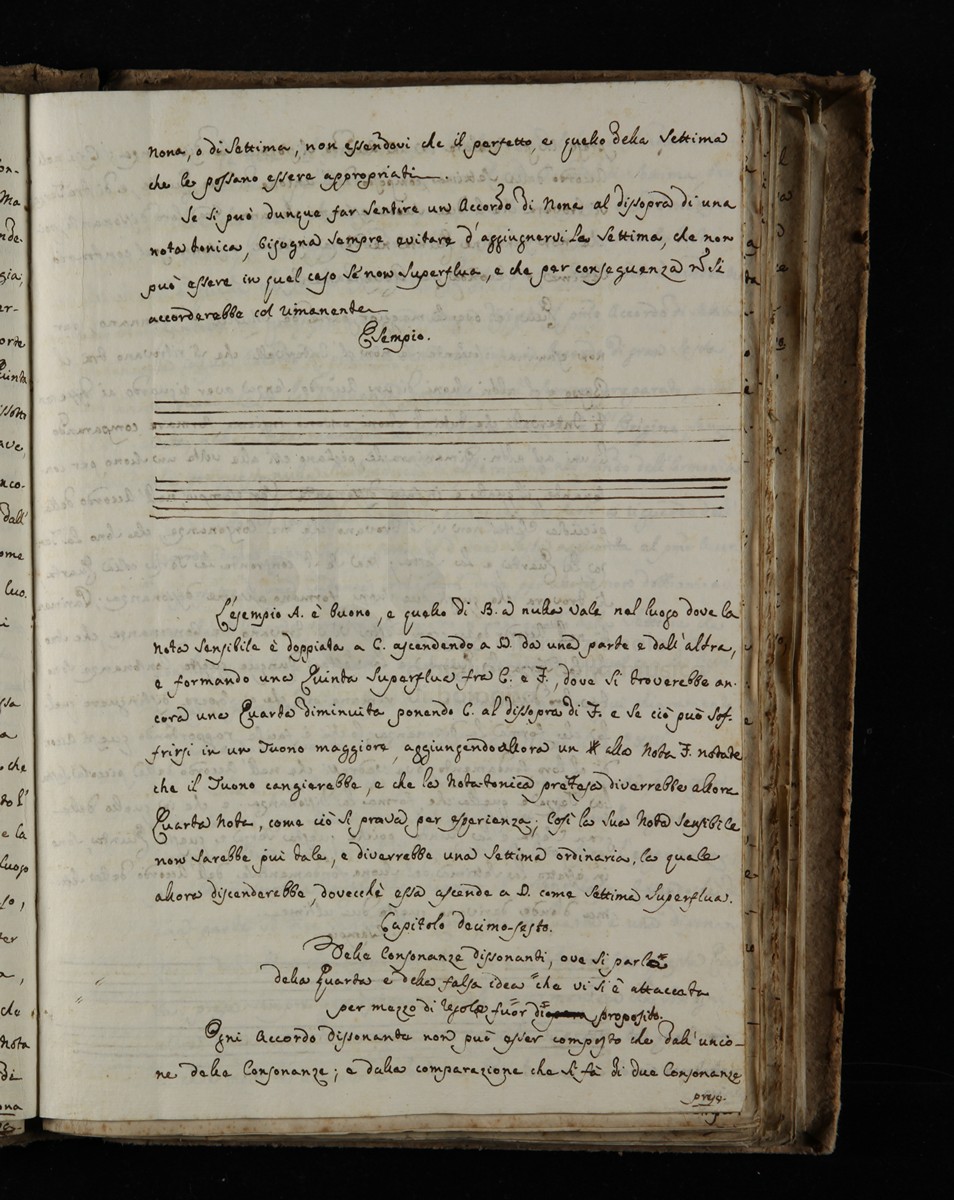 Nona, o di Settima, non essendovi che il perfetto, e quello della Settima
che le possano essere appropriati.
Se si può dunque far sentire un Accordo di Nona al dissopra di una
nota tonica, bisogna sempre evitare d'aggiugnervi la Settima, che non
può essere in quel caso se non Superflua, e che per conseguenza nõ si
accorderebbe col rimanente
Esempio.
L'esempio A. è buono, e quello di B. a nulla vale nel luogo dove la
nota sensibile è doppiata a C. ascendendo a D. da una parte e dall'altra,
e formando una Quinta Superflua fra C. e F., dove si troverebbe an-
cora una Quarta diminuita ponendo C. al dissopra di F. e se ciò può sof-
frirsi in un Tuono maggiore, aggiungendo allora un # alla Nota F. notate
che il Tuono cangierebbe, e che la Nota tonica pretesa diverrebbe allora
Quarta Nota, come ciò si prova per esperienza; Così la sua Nota sensibile
non sarebbe più tale, e diverrebbe una Settima ordinaria, la quale
allora discenderebbe, dovecchè essa ascende a D. come Settima Superflua.
Capitolo decimo-sesto.
Delle Consonanze dissonanti, ove si parla
della Quarta e della falsa idea che vi si è attaccata
per mezzo di regole fuor di proposito.
Ogni Accordo dissonante non può esser composto che dall'unio-
ne delle Consonanze; e dalla comparazione che si fà di due Consonanze